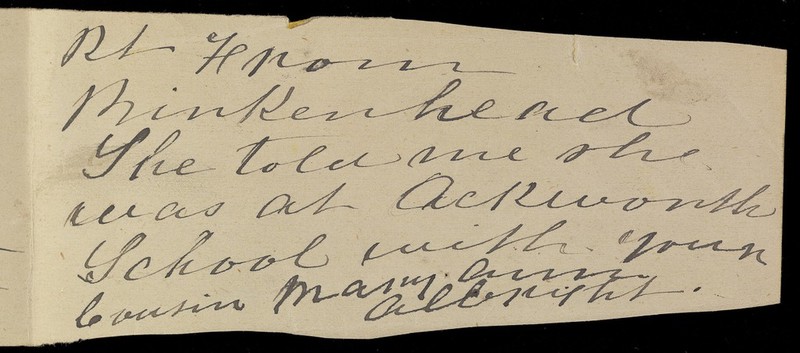 Rt From
Birkenhead
She told me she
was at Ackworth
School with your
Cousin Mary Ann
Albright.